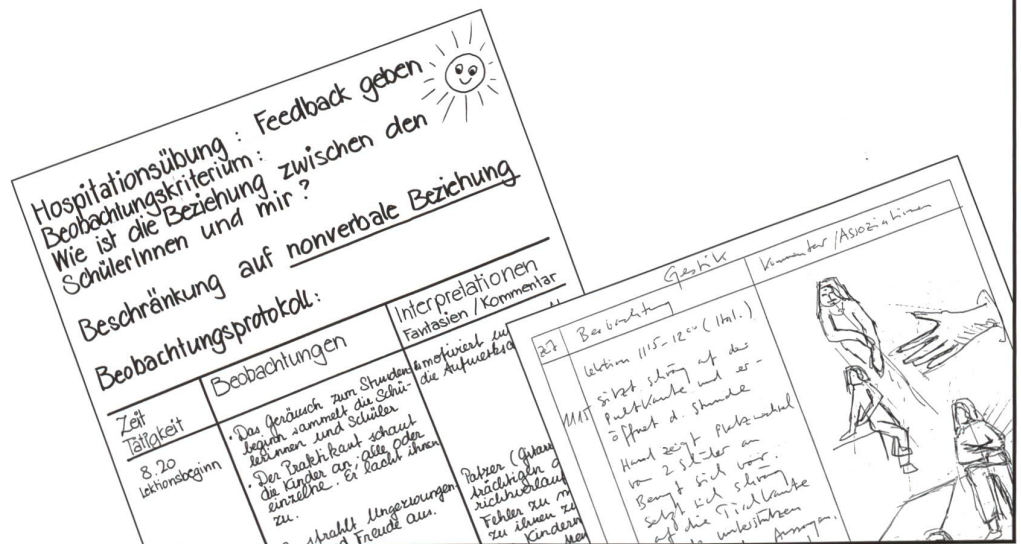 Hospitationsübung: Feedback geben
Beobachtungskriterium:
Wie ist die Beziehung zwischen den
SchülerInnen und mir?
Beschränkung auf nonverbale Beziehung
Beobachtungsprotokoll:
Zeit
Tätigkeit
Beobachtungen
Interpretationen
Fantasien/Kommentar
8.20
Lektionsbeginn
• Das Geräusch zum Stunden-
beginn sammelt die Schü-
lerinnen und Schüler
• Der Praktikant schaut
die Kinder an: alle oder
einzelne. Er lacht ihnen
zu.
strahlt Ungezwungen
d Freude aus.
motiviert
die Aufmerks
Patzer (Gitarre
trächtigen d
richtsverlauf
Fehler zu m
zu ihnen z
Kindern
Gestik
Beobachtung
Kommentar/Assoziationen
Lektion 11 15 - 12 00 (Ital.)
11 15
sitzt schräg auf der
Pultkante und er-
öffnet d. Stunde
Hand zeigt Platzwechsel
von 2 Schüler an
Beugt sich vor.
setzt sich schräg
auf die Tischkante
unterstützen
Aussagen.